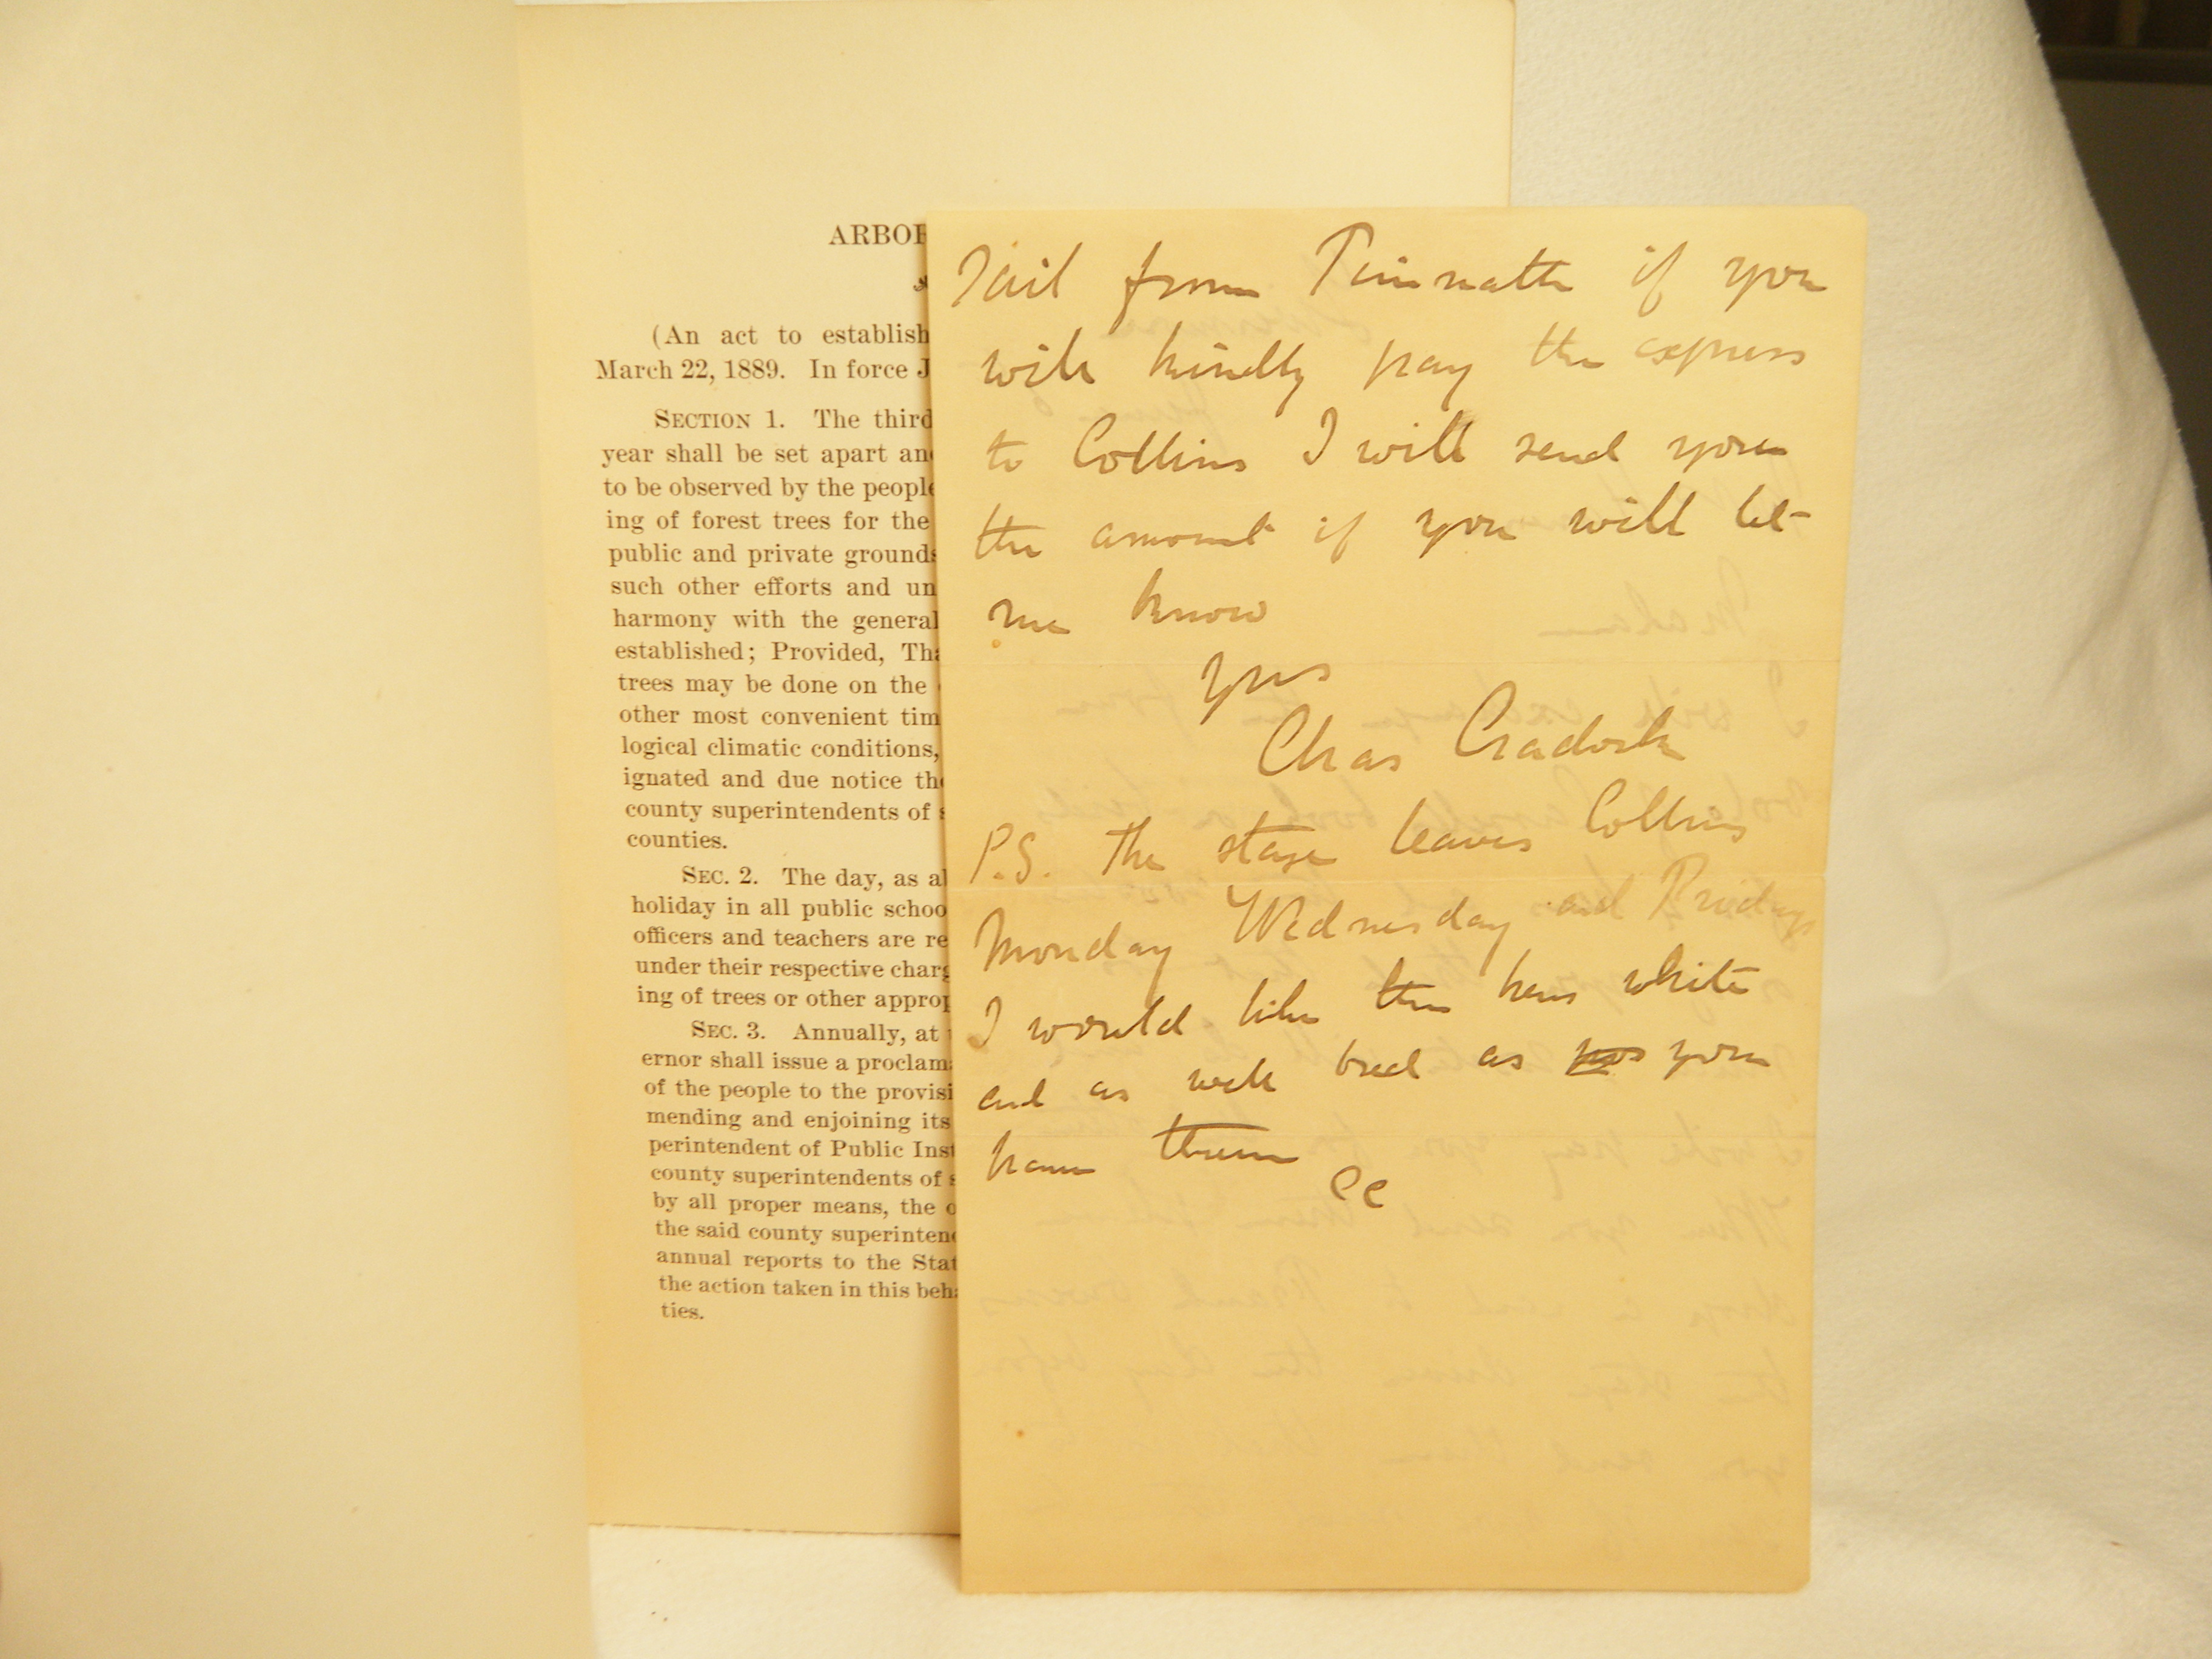 ARBOR
(An act to establish
March 22, 1889. In force J
SECTION 1. The third
year shall be set apart an
to be observed by the people
ing of forest trees for the
public and private grounds
such other efforts and un
harmony with the general
established; Provided, Tha
trees may be done on the
other most convenient tim
logical climatic conditions,
ignated and due notice the
county superintendents of s
counties.
SEC. 2. The day, as al
holiday in all public schoo
officers and teachers are re
under their respective charg
ing of trees or other approp
SEC. 3. Annually, at
ernor shall issue a proclama
of the people to the provisi
mending and enjoining its
perintendent of Public Inst
county superintendents of s
by all proper means, the o
the said county superintend
annual reports to the Stat
the action taken in this beha
ties.
rail from Timnath if you
will kindly pay the express
to Collins I will send you
the amount if you will let
me know
Yrs
Chas Cradock
P.S. The stage leaves Collins
Monday Wednesday and Fridays
I would like the hens white
and as well bred as you
have them
CC